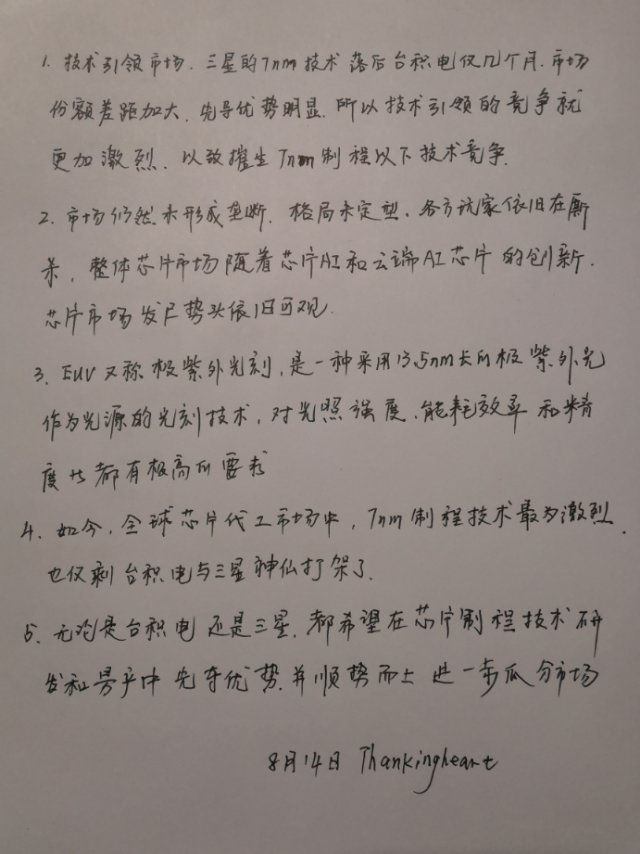 1. 技术引领市场. 三星的7nm技术落后台积电仅几个月. 市场
份额差距加大. 先导优势明显. 所以技术引领的竞争就
更加激烈. 以致催生7nm制程以下技术竞争.
2. 市场仍然未形成垄断. 格局未定型. 各方玩家依旧在厮
杀. 整体芯片市场随着芯片AI和云端AI芯片的创新.
芯片市场发展势头依旧可观.
3. EUV又称极紫外光刻, 是一种采用13.5nm长的极紫外光
作为光源的光刻技术, 对光照强度. 能耗效率和精
度 都有极高的要求
4. 如今, 全球芯片代工市场中, 7nm制程技术最为激烈.
也仅剩台积电与三星神仙打架了.
5. 无论是台积电还是三星. 都希望在芯片制程技术研
发和量产中先夺优势. 并顺势而上 进一步瓜分市场
8月14日 Thankingheart